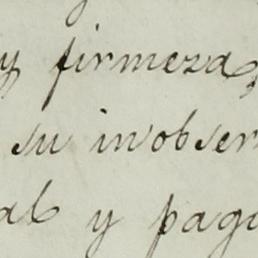 y firmeza,
su inobser
al y pag